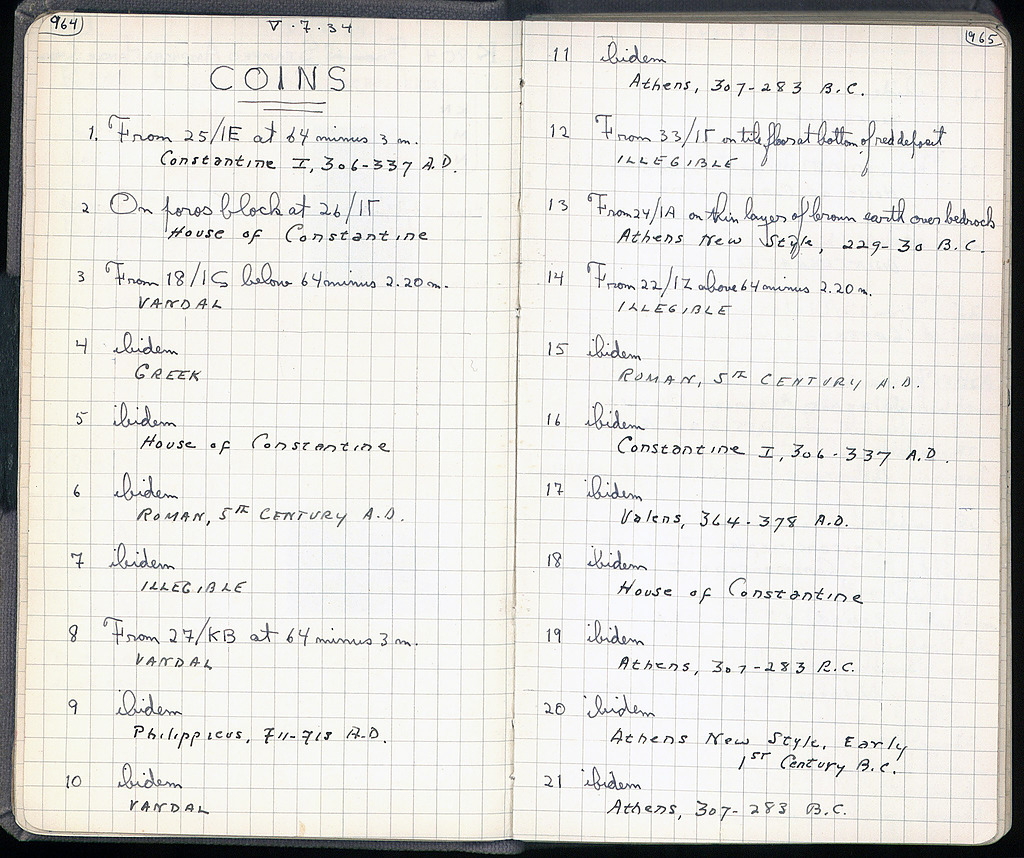 964
V · 7 · 34
COINS
1. From 25/IE at 64 minus 3 m.
Constantine I, 306-337 A.D.
2 On poros block at 26/IΓ
House of Constantine
3 From 18/IS below 64 minus 2.20 m.
VANDAL
4 ibidem
GREEK
5 ibidem
House of Constantine
6 ibidem
ROMAN, 5TH CENTURY A.D.
7 ibidem
ILLEGIBLE
8 From 27/KB at 64 minus 3 m.
VANDAL
9 ibidem
Philippicus, 711-713 A.D.
10 ibidem
VANDAL
965
11 ibidem
Athens, 307-283 B.C.
12 From 33/IΓ on tile floor at bottom of red deposit
ILLEGIBLE
13 From 24/IA on thin layer of brown earth over bedrock
Athens New Style, 229-30 B.C.
14 From 22/IZ above 64 minus 2.20 m.
ILLEGIBLE
15 ibidem
ROMAN, 5TH CENTURY A.D.
16 ibidem
Constantine I, 306-337 A.D.
17 ibidem
Valens, 364-378 A.D.
18 ibidem
House of Constantine
19 ibidem
Athens, 307-283 B.C.
20 ibidem
Athens New Style, Early
1ST Century B.C.
21 ibidem
Athens, 307-283 B.C.